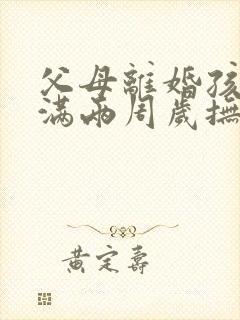 父母離婚孩
满两周歲撫
黄定壽